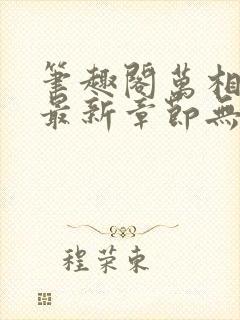 筆趣閣萬相
最新章節無
程荣東